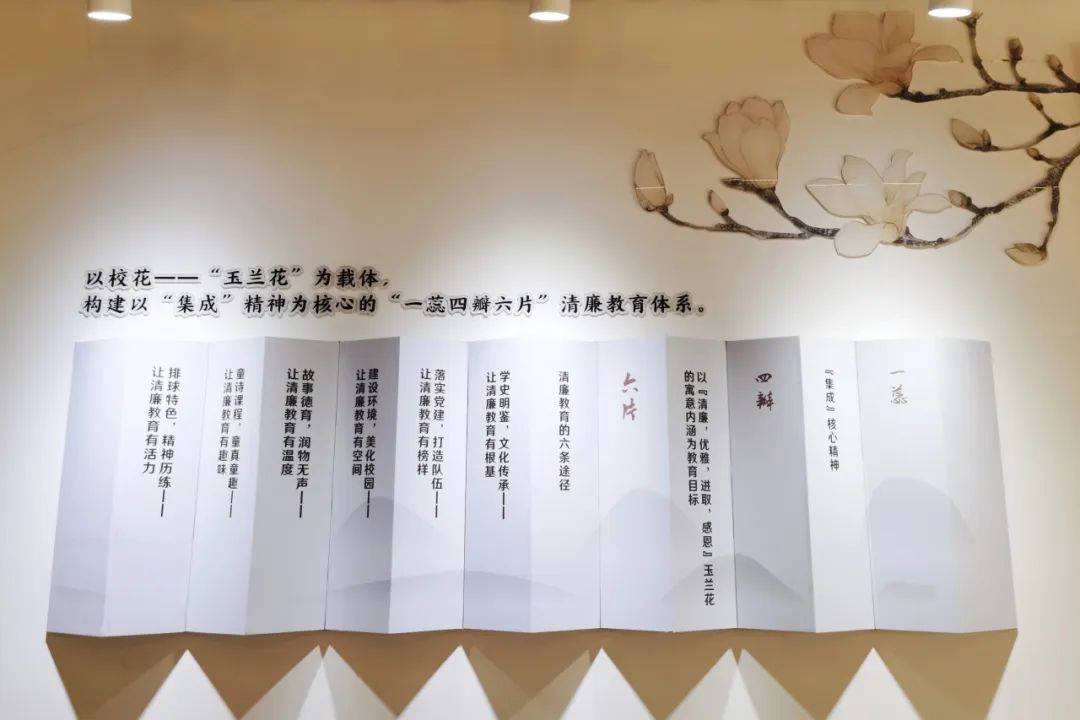 以校花——“玉兰花”为载体，
构建以“集成”精神为核心的“一蕊四瓣六片”清廉教育体系。
一蕊
『集成』核心精神
四瓣
以『清廉，优雅，进取，感恩』玉兰花
的寓意内涵为教育目标
六片
清廉教育的六条途径
学史明鉴，文化传承——
让清廉教育有根基
落实党建，打造队伍——
让清廉教育有榜样
建设环境，美化校园——
让清廉教育有空间
故事德育，润物无声——
让清廉教育有温度
童诗课程，童真童趣——
让清廉教育有趣味
排球特色，精神历练——
让清廉教育有活力